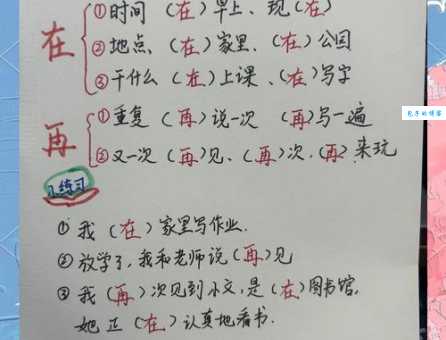 在
①时间 (在)早上、现(在)
②地点、(在)家里、(在)公园
③干什么 (在)上课、(在)写字
再
①重复 (再)说一次 (再)写一遍
②又一次 (再)见、(再)次、(再)来玩
小练习
①我(在)家里写作业.
②放学了,我和老师说(再)见
③我(再)次见到小文,是(在)图书馆,
她正(在)认真地看书.